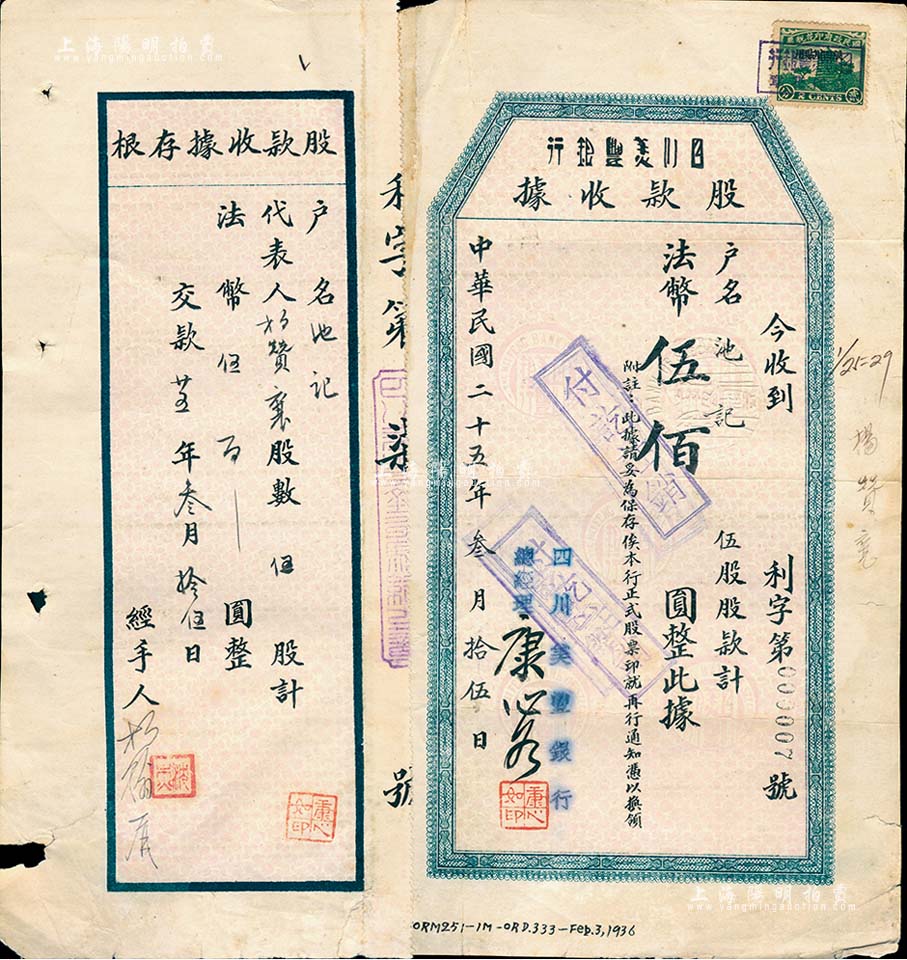 四川美豐銀行
股款收據
今收到
利字第000007號
户名 池記 伍股股款計
法幣 伍佰 圓整此據
附註：此據請妥為保存俟本行正式股票印就再行通知憑以換領
四川美豐銀行
總經理 康心如
康心如印
中華民國二十五年叁月拾伍日
利字第 柒 號
股款收據存根
户名 池記
代表人 楊贊襄 股數 伍 股計
法幣 伍百 圓整
交款 廿五年叁月拾伍日
經手人
康心如印
國民政府印花稅票
2 CENTS
1/21=29
楊贊襄
ORM251-1M-ORD.333-FeD.3,1936
上海陽明拍賣
www.yangmingauction.com
上海陽明拍賣
www.yangmingauction.com